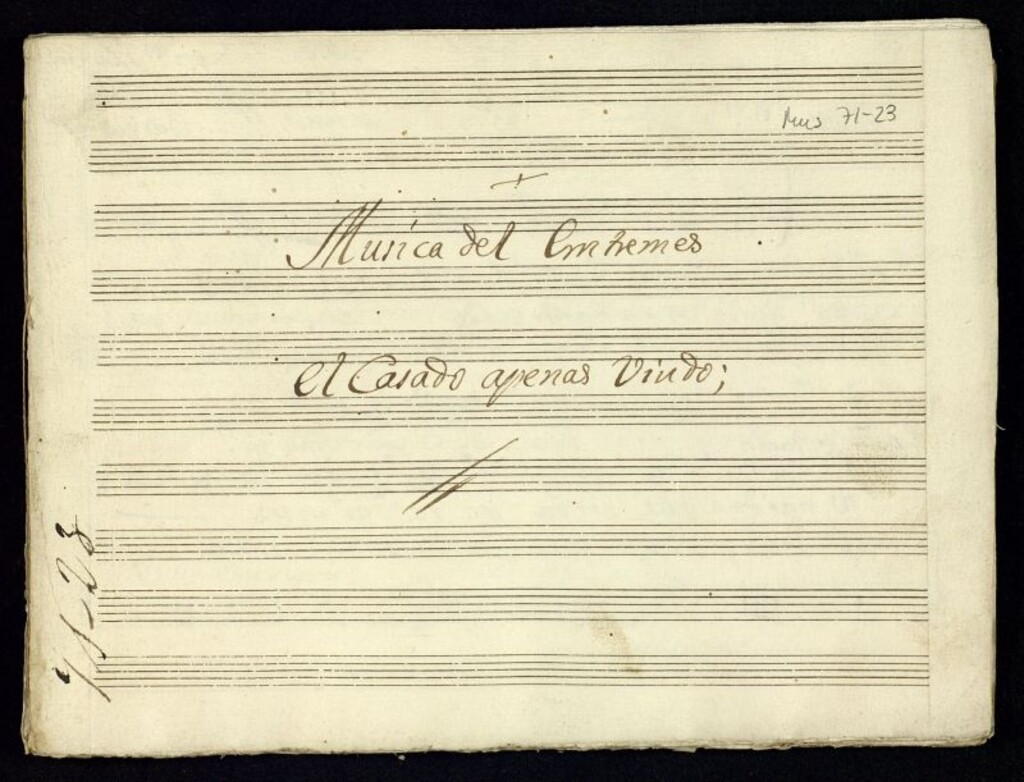 Mus 71-23
+
Musica del Entremes
el Casado apenas Viudo;
71-23